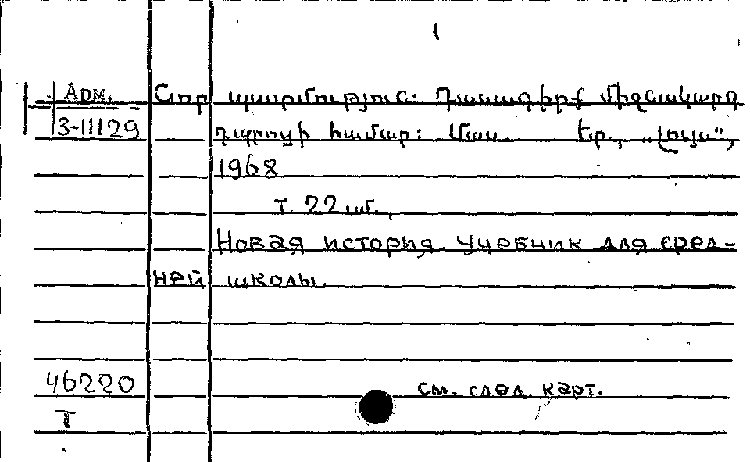 1
Арм. Նոր պատմություն: Դասագիրք միջնակարգ
3-11129 դպրոցի համար: Մաս. Եր., „Լույս",
1968
т. 22 шт.,
Новая история. Учебник для сред-
ней школы.
46220 см. след. карт.
Т